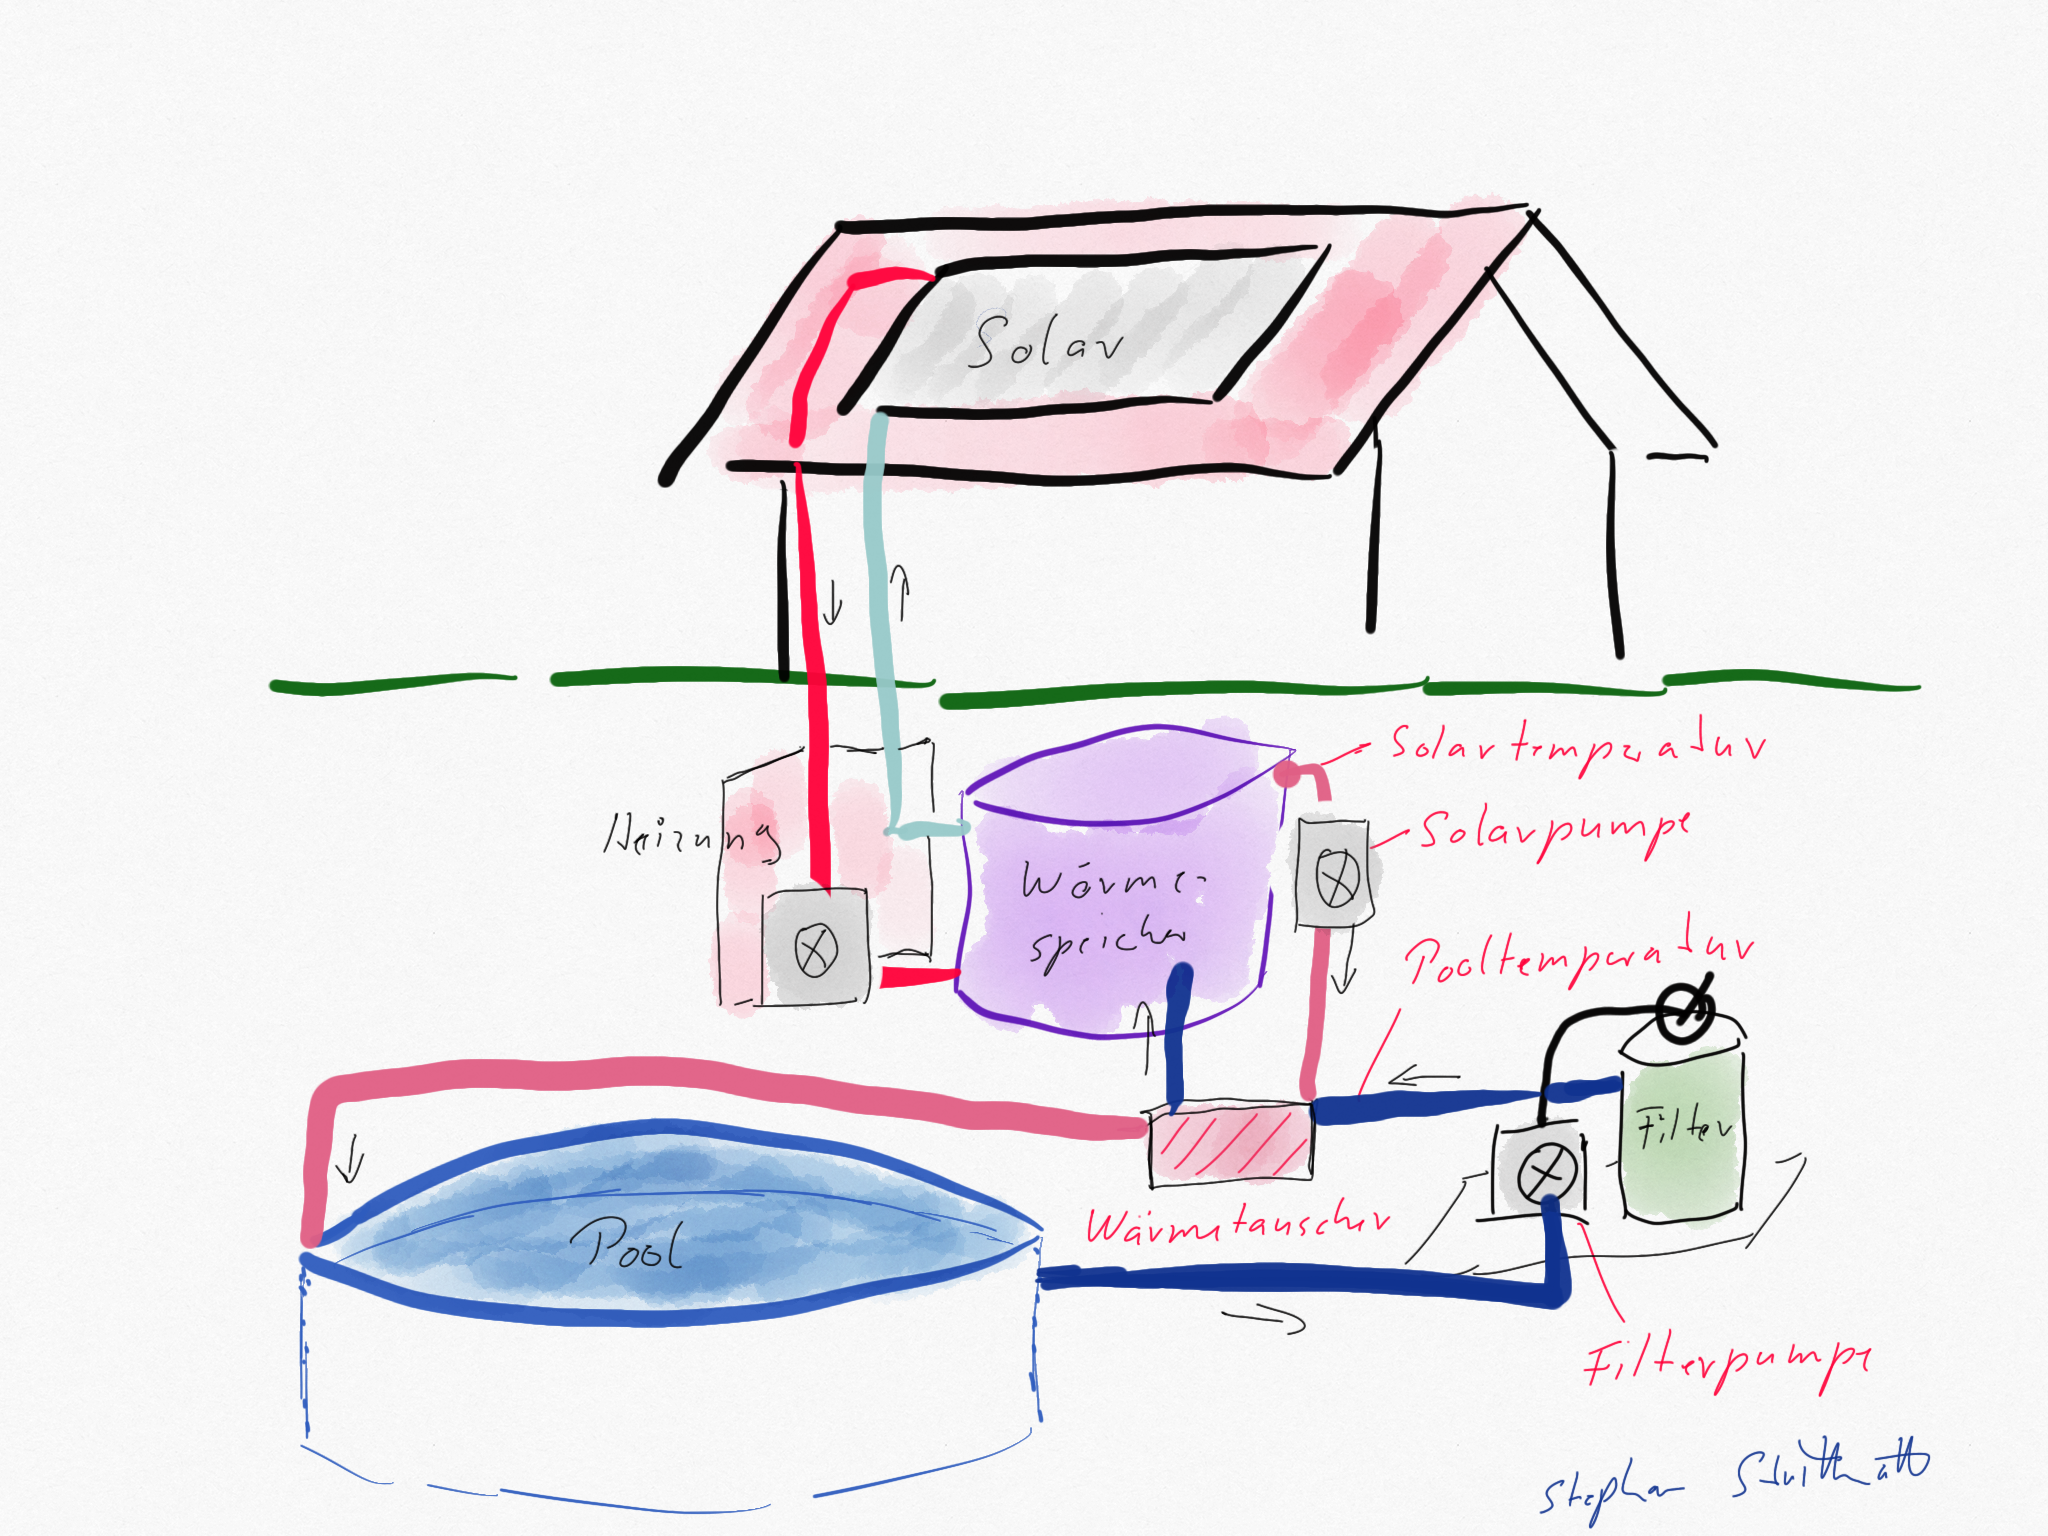 Solar
Solartemperatur
Solarpumpe
Heizung
Wärme-
speicher
Pooltemperatur
Filter
Pool
Wärmetauscher
Filterpumpe
Stephan